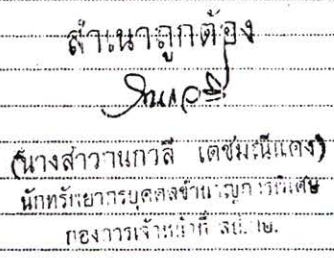 สำเนาถูกต้อง
(นางสาวานกวลี เดชมณีแดง)
นักทรัพยากรบุคคลชำนาญการพิเศษ
กองการเจ้าหน้าที่